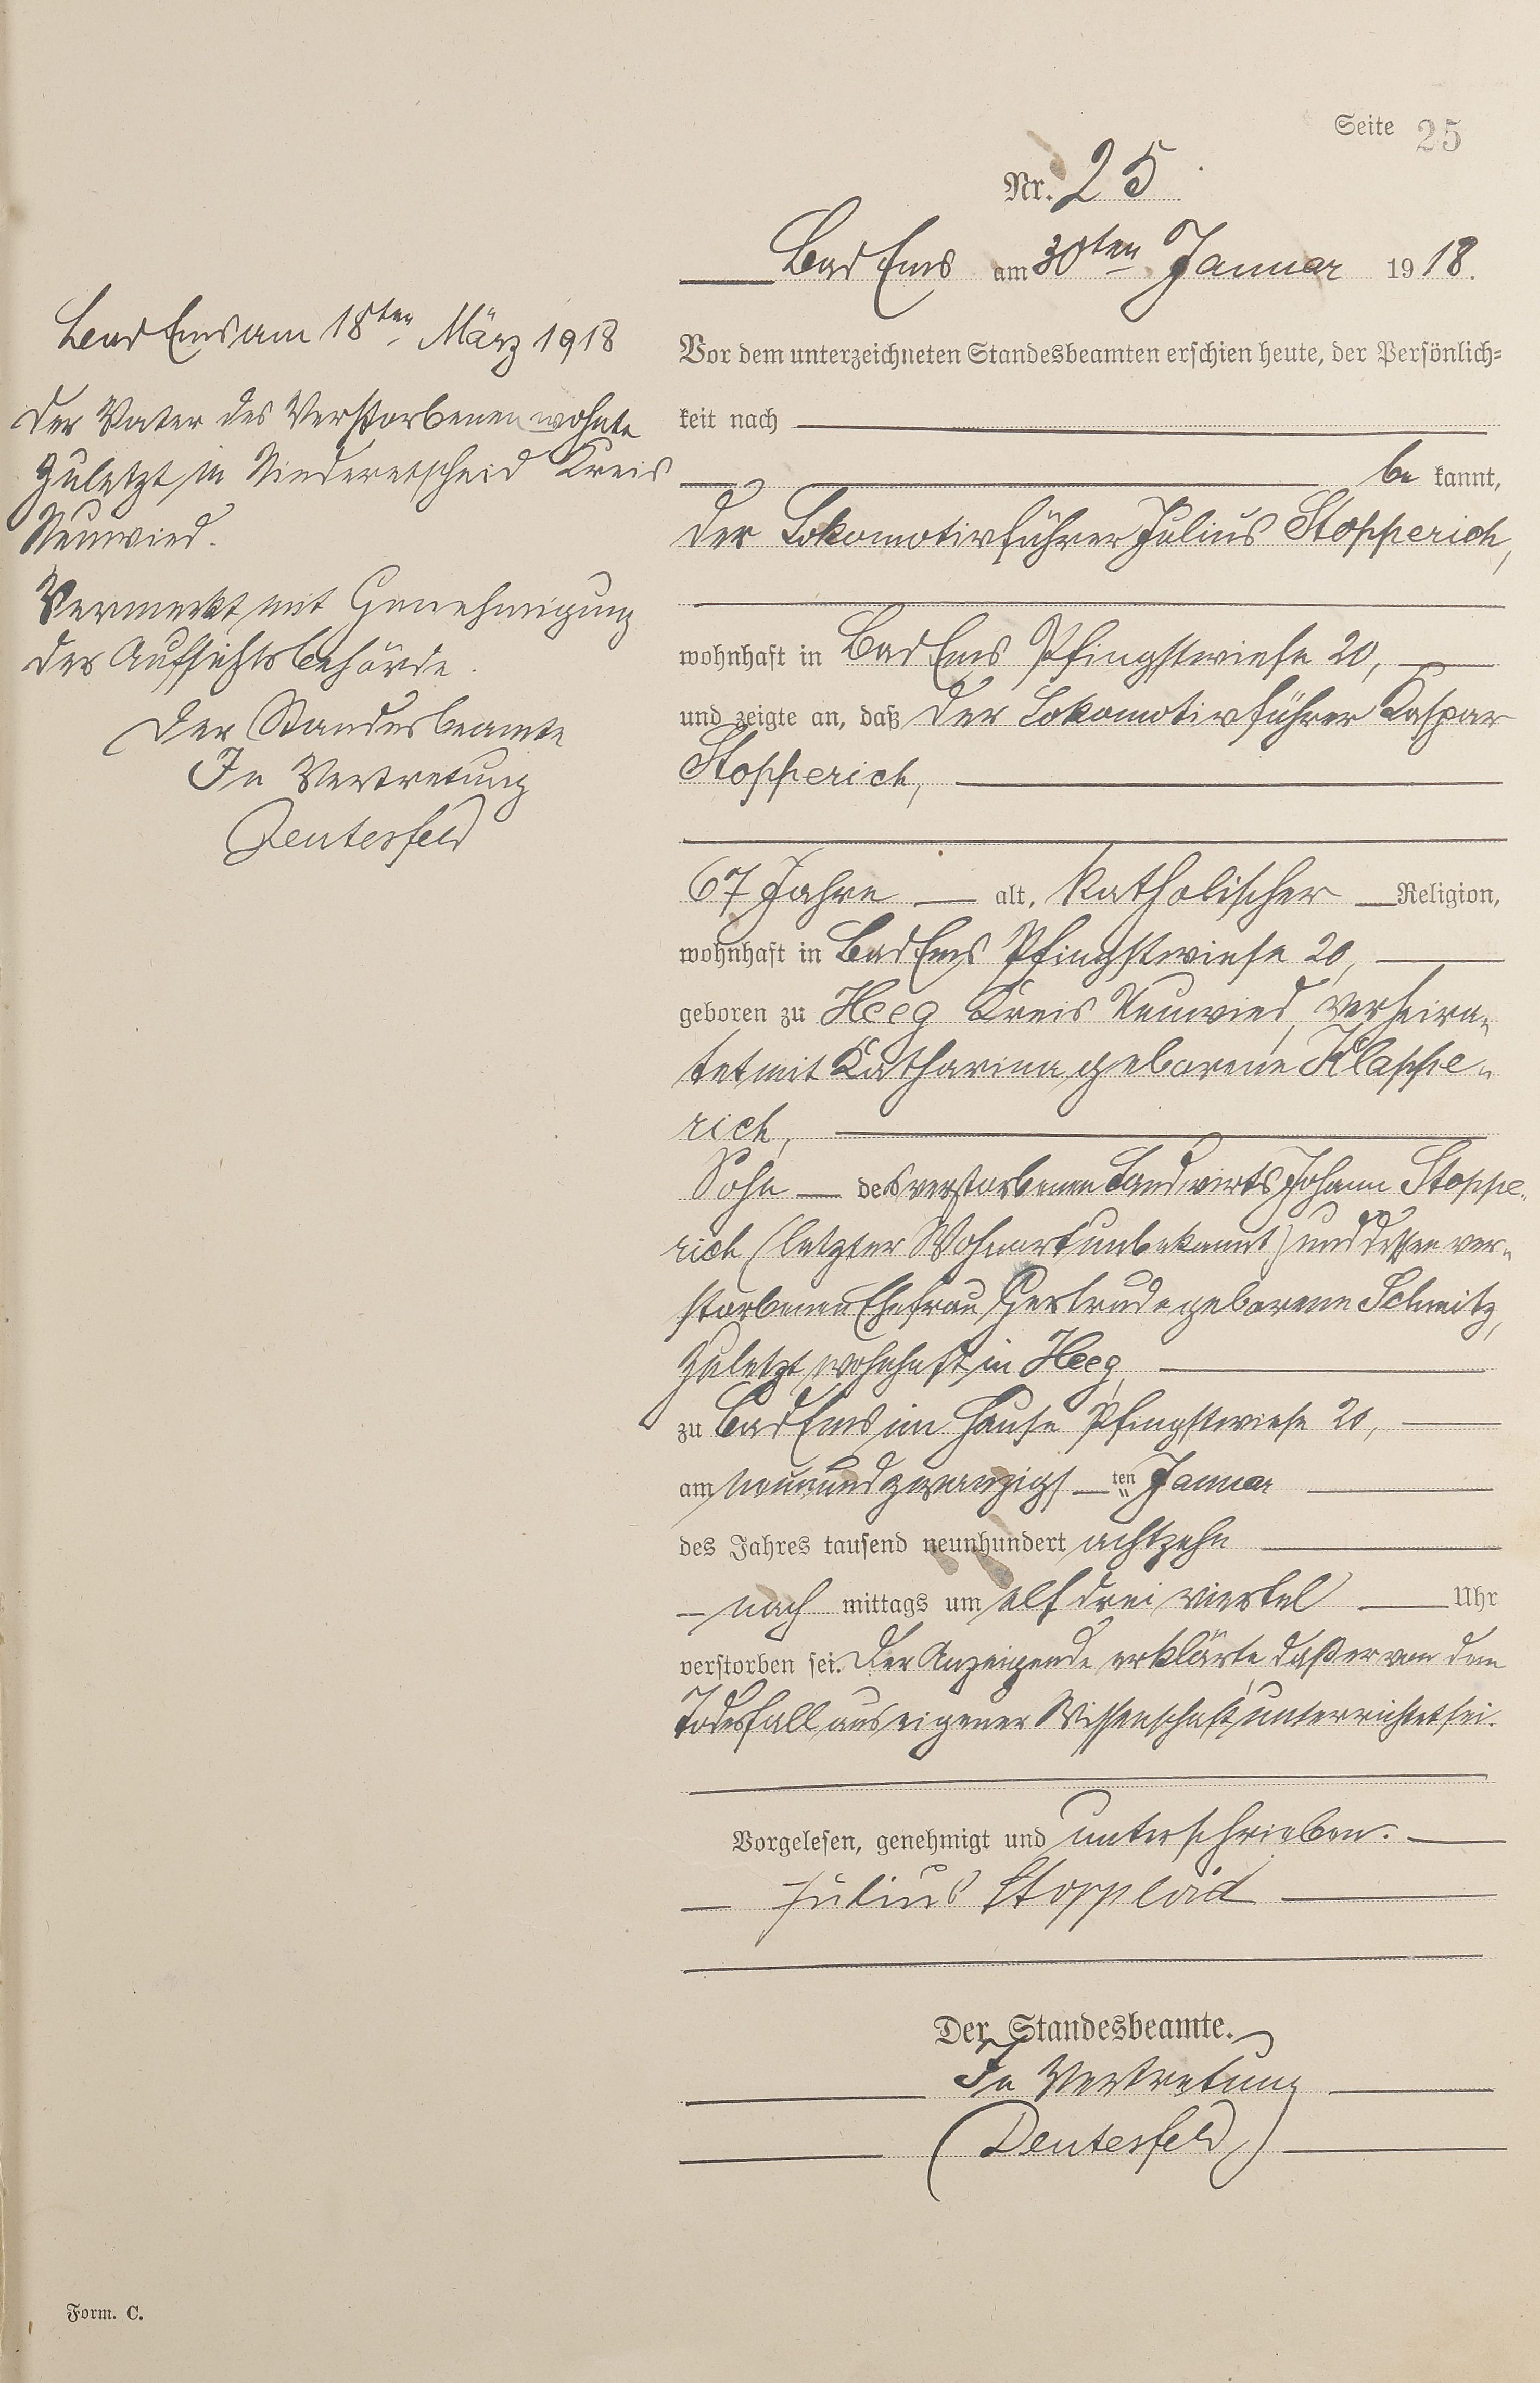 Seite 25
Nr. 25
Bad Ems am 30ten Januar 1918.
Vor dem unterzeichneten Standesbeamten erschien heute, der Persönlich=
keit nach
be kannt,
der Lokomotivführer Julius Stopperich,
wohnhaft in Bad Ems Pfingstwiese 20,
und zeigte an, daß der Lokomotivführer Kaspar
Stopperich,
67 Jahre alt, katholischer Religion,
wohnhaft in Bad Ems Pfingstwiese 20,
geboren zu Heeg Kreis Neuwied, verheira-
tet mit Katharina geborene Klappe-
rich,
Sohn des verstorbenen Landwirts Johann Stoppe-
rich (letzter Wohnort unbekannt) und dessen ver-
storbenen Ehefrau Gertrude geborene Schmitz,
zuletzt wohnhaft in Heeg,
zu Bad Ems im Hause Pfingstwiese 20,
am neunundzwanzigs ten Januar
des Jahres tausend neunhundert achtzehn
nach mittags um elf drei viertel Uhr
verstorben sei. Der Anzeigende erklärte, daß er von dem
Todesfall aus eigener Wissenschaft unterrichtet sei.
Vorgelesen, genehmigt und unterschrieben.
Julius Stopperich
Der Standesbeamte.
In Vertretung
(Deutesfeld)
Bad Ems am 18ten März 1918
Der Vater des Verstorbenen wohnte
zuletzt in Kreis
Neuwied.
Vermerkt mit Genehmigung
der Aufsichtsbehörde.
Der Standesbeamte
In Vertretung
Deutesfeld
Form. C.